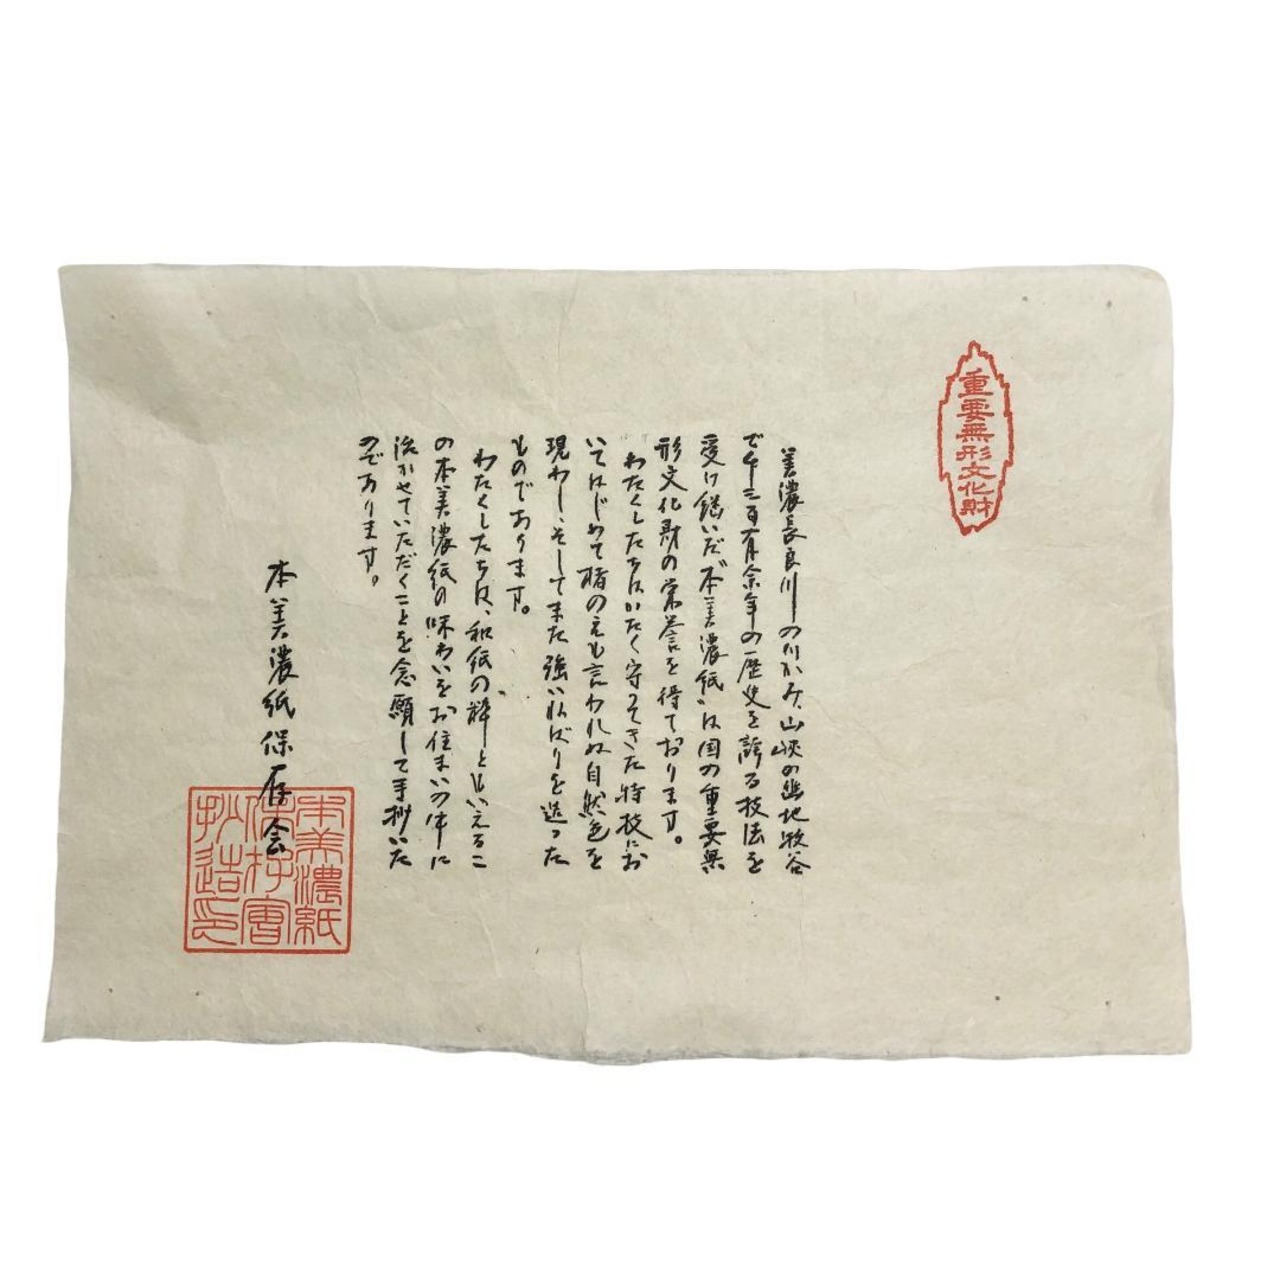 重要無形文化財
美濃長良川の川かみ、山峡の幽地牧谷
で千三百有余年の歴史を誇る技法を
受け継いだ〝本美濃紙〟は国の重要無
形文化財の栄誉を得ております。
わたくしたちはかたく守ってきた特技にお
いてはじめて楮のえも言われぬ自然色を
現わし、そしてまた強いねばりを造った
ものであります。
わたくしたちは、和紙の粋ともいえるこ
の本美濃紙の味わいをお住まいの中に
活かせていただくことを念願して手抄いた
のであります。
本美濃紙保存会
本美濃紙
保存會
抄造之印